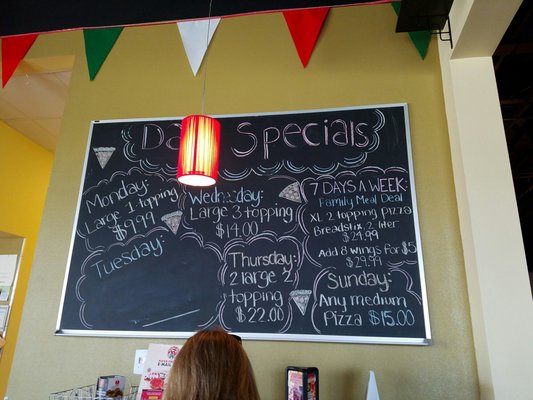 Da Specials
Monday:
Large 1 topping
$9.99
Tuesday:
Wednesday:
Large 3 topping
$14.00
Thursday:
2 large 2
topping
$22.00
7 DAYS A WEEK:
Family Meal Deal
XL 2 topping pizza
Breadstix, 2 liter
$24.99
Add 8 wings for $5
$29.99
Sunday:
Any medium
Pizza $15.00